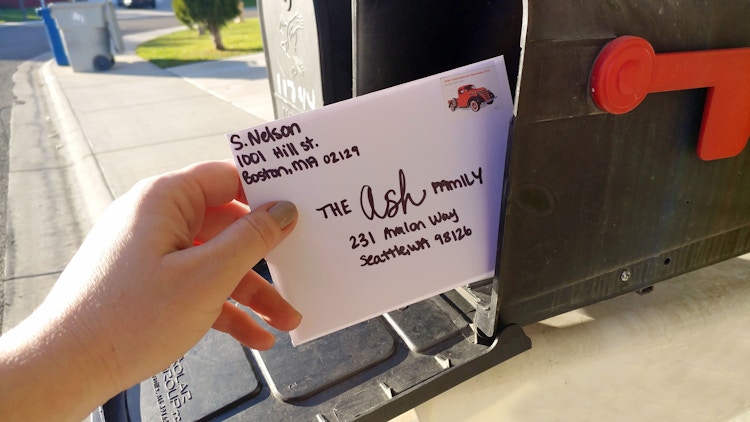 S. Nelson
1001 Hill St.
Boston, MA 02129
THE ash FAMILY
231 Avalon Way
Seattle, WA 98126
SOLAR
GROUP